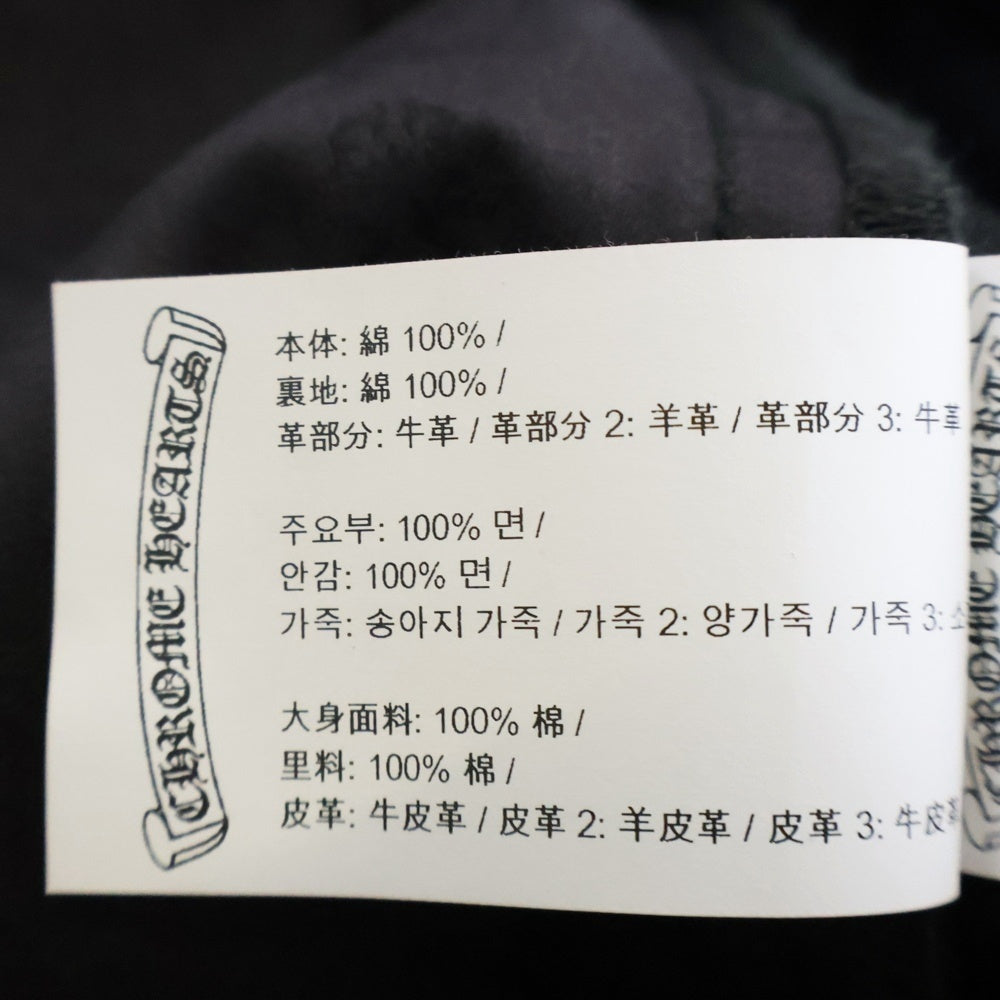 CHROME HEARTS
本体: 綿 100% /
裏地: 綿 100% /
革部分: 牛革 / 革部分 2: 羊革 / 革部分 3: 牛革
주요부: 100% 면 /
안감: 100% 면 /
가죽: 송아지 가죽 / 가죽 2: 양가죽 / 가죽 3:
大身面料: 100% 棉 /
里料: 100% 棉 /
皮革: 牛皮革 / 皮革 2: 羊皮革 / 皮革 3: 牛皮